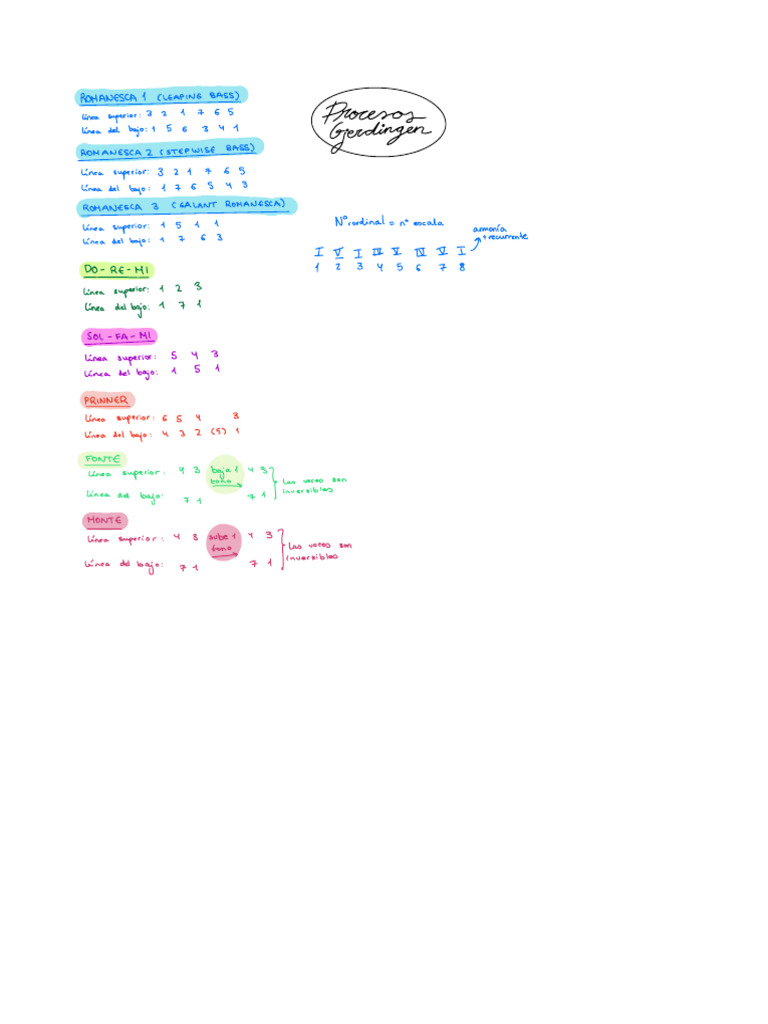 ROMANESCA 1 (LEAPING BASS)
Línea superior: 3 2 1 7 6 5
Línea del bajo: 1 5 6 3 4 1
ROMANESCA 2 (STEPWISE BASS)
Línea superior: 3 2 1 7 6 5
Línea del bajo: 1 7 6 5 4 3
ROMANESCA 3 (GALANT ROMANESCA)
Línea superior: 1 5 1 1
Línea del bajo: 1 7 6 3
DO-RE-MI
Línea superior: 1 2 3
Línea del bajo: 1 7 1
SOL-FA-MI
Línea superior: 5 4 3
Línea del bajo: 1 5 1
PRINNER
Línea superior: 6 5 4 3
Línea del bajo: 4 3 2 (5) 1
FONTE
Línea superior: 4 3 baja 1 tono 4 3
Línea del bajo: 7 1 7 1
Las voces son
inversibles
MONTE
Línea superior: 4 3 sube 1 tono 4 3
Línea del bajo: 7 1 7 1
Las voces son
inversibles
Procesos
Gjerdingen
Nº cardinal = nº escala
armonía
+ recurrente
I V I IV V IV V I
1 2 3 4 5 6 7 8